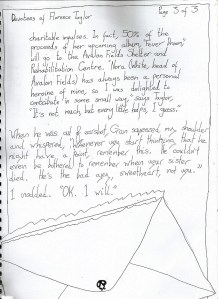 Devotions of Florence Taylor
Page 3 of 3
charitable impulses. In fact, 50% of the
proceeds of her upcoming album,
will go to the Avalon Fields Shelter and
Rehabilitation Centre. "Nora White, head of
Avalon Fields) has always been a personal
heroine of mine, so I was delighted to
contribute in some small way," says Taylor,
"It's not much, but every little helps, I guess."
When he was out of earshot, Gran squeezed my shoulder
and whispered, "Whenever you start thinking that he
might have a point, remember this. He couldn't
even be bothered to remember when your sister
died. He's the bad guy, sweetheart, not you."
I nodded. "OK. I will."